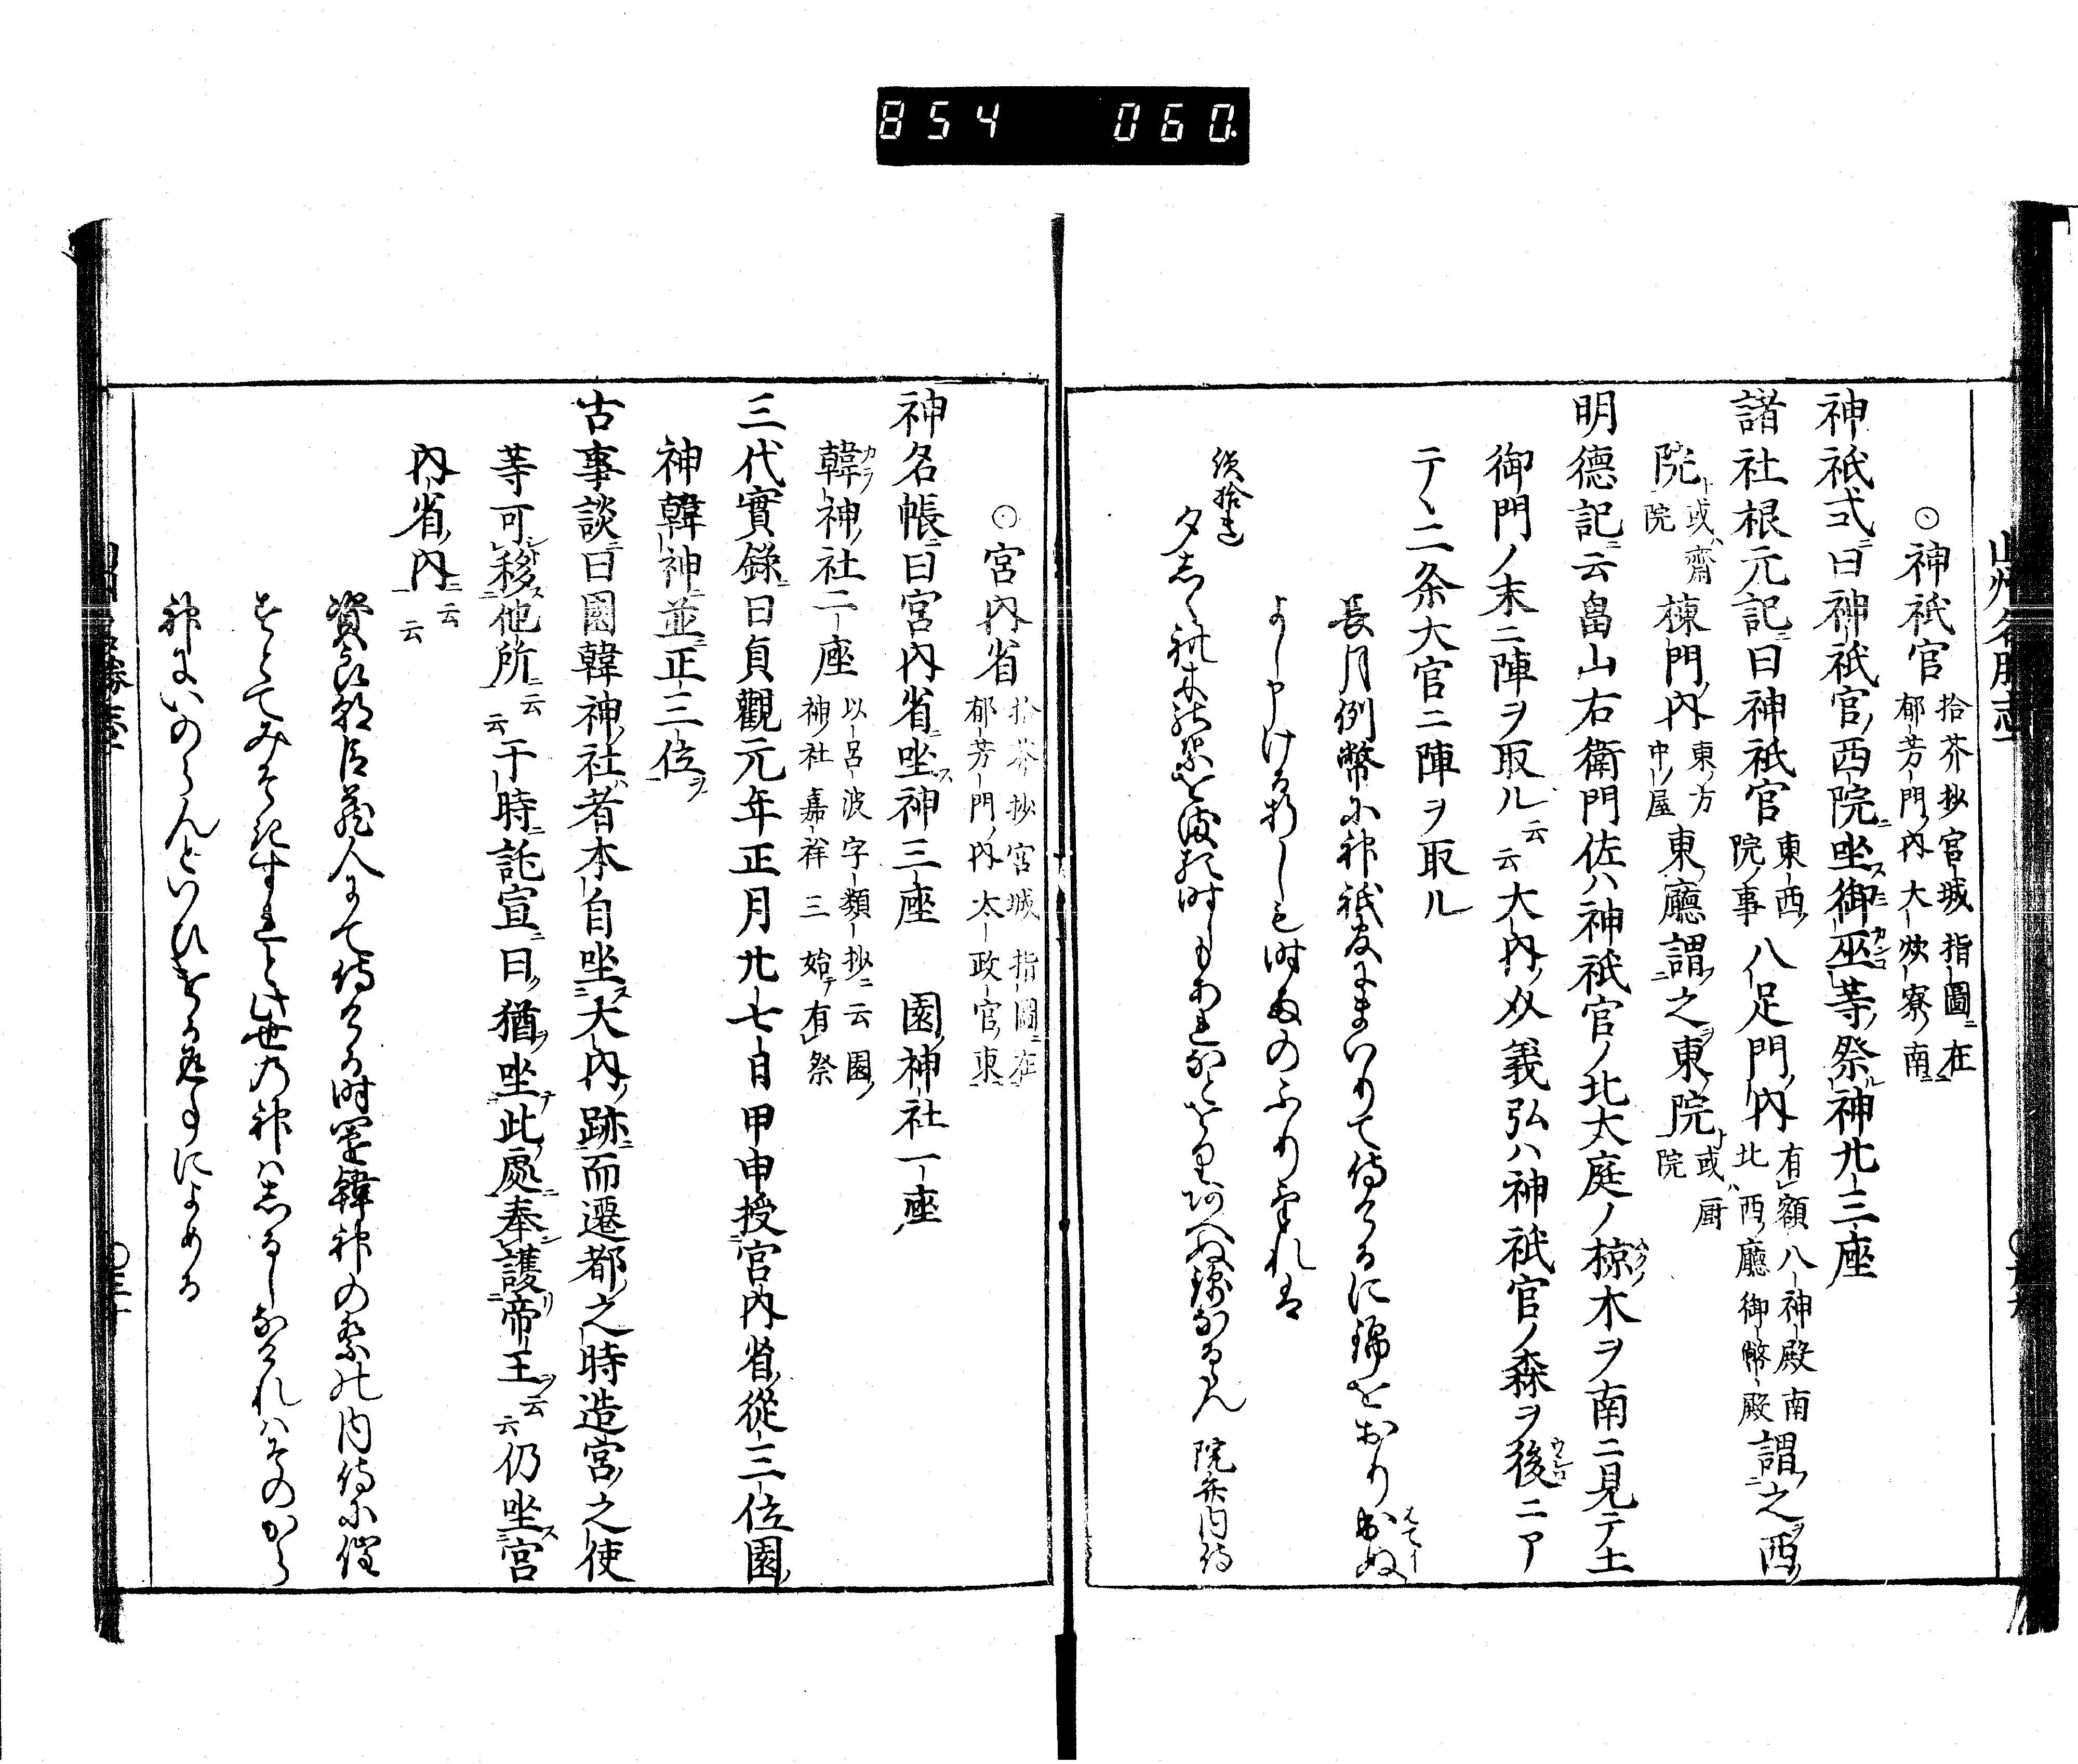 854 060.
山州名勝志
⊙神祇官 拾芥抄宮城指圖ニ在
郁芳門ノ内大炊寮ノ南ニ
神祇式ニ曰神祇官ノ西院ニ坐ス御巫等ノ祭ル神廿三座
諸社根元記ニ曰神祇官 東西ノ院ノ事 八足門ノ内 有額八神殿南 北ハ西ノ廳御幣殿 謂之ヲ西ノ
院ト 或ハ齋院 棟門ノ内 東ノ方中ノ屋 東ノ廳謂之ヲ東ノ院ト 或ハ厨院
明德記ニ云畠山右衛門佐ハ神祇官ノ北大庭ノ椋木ヲ南ニ見テ土
御門ノ末ニ陣ヲ取ル云云大内ノ義弘ハ神祇官ノ森ヲ後ニア
テヽ二条大官ニ陣ヲ取ル
長月例幣に神祇官にまいりて侍けるに錦をおりぬ
よし申ける折しも時雨のふり
院弁内侍
⊙宮内省 拾芥抄宮城指圖ニ在
郁芳門ノ内太政官ノ東ニ
神名帳ニ曰宮内省ニ坐ス神三座 園ノ神社一座
韓神ノ社二座 以呂波字類抄ニ云園ノ
神ノ社嘉祥三始テ有祭
三代實錄ニ曰貞觀元年正月廿七日甲申授宮内省ノ從三位園ノ
神韓神並ニ正三位ヲ
古事談ニ曰園韓神ノ社ハ者本自坐ス大内ノ跡ニ而遷都ノ之時造宮ノ之使
等可移ス他所ニ云云于時ニ託宣ニ曰ク猶ヲ坐テ此ノ處ニ奉護リ帝王ヲ云云仍坐ス宮
内省ノ内ニ云云
資良朝臣蔵人にて侍ける時園韓神の祭の内侍に催
すとてみそきすれと此世の神はしるしなけれはそのから
神にいのらんといひける返事によめる